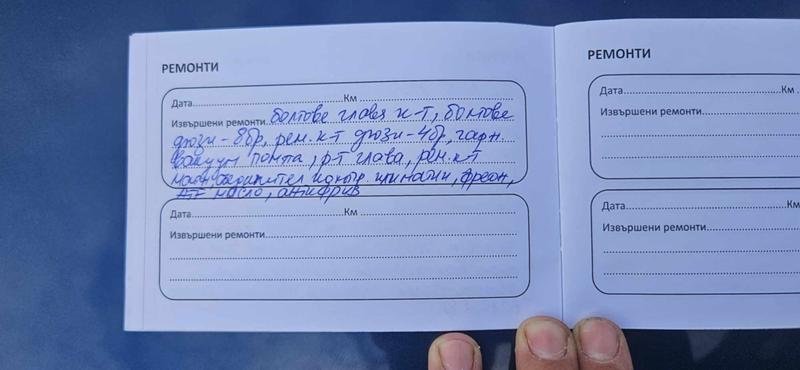 РЕМОНТИ
Дата Км
Извършени ремонти болтове глава к-т, болтове
дюзи - 8бр, рем. к-т дюзи - 4бр, гарн.
вакуум помпа, р-т глава, рем. к-т
масл. охладител, фреон,
ATF масло, антифриз
Дата Км
Извършени ремонти
РЕМОНТИ
Дата
Км
Извършени ремонти
Дата
Км
Извършени ремонти